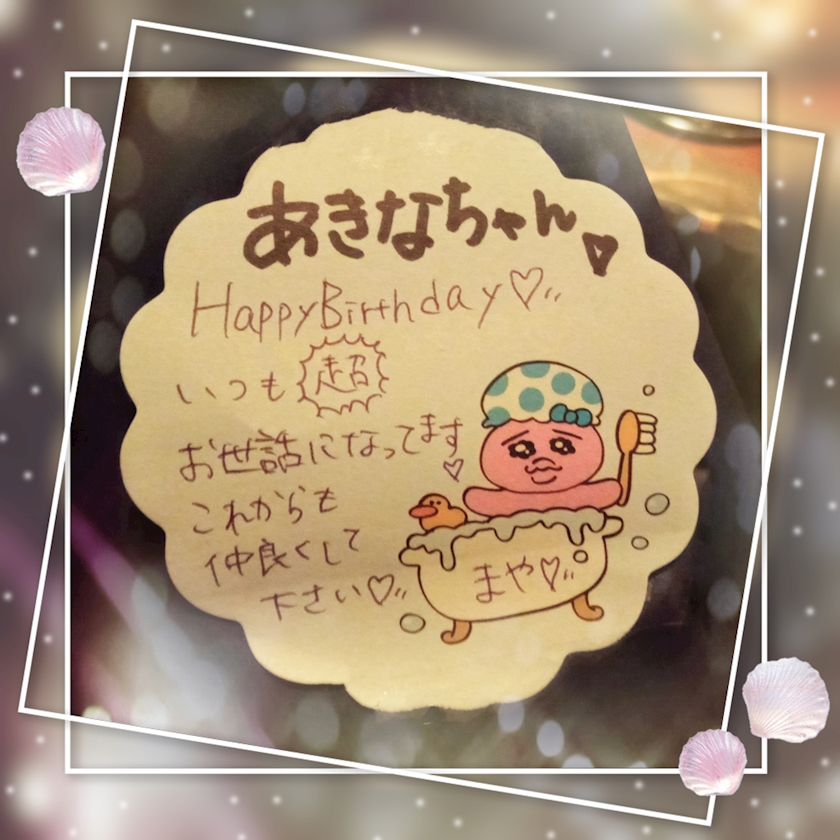 あきなちゃん♡
HappyBirthday♡〃
いつも超
お世話になってます♡
これからも
仲良くして
下さい♡〃
まや♡〃